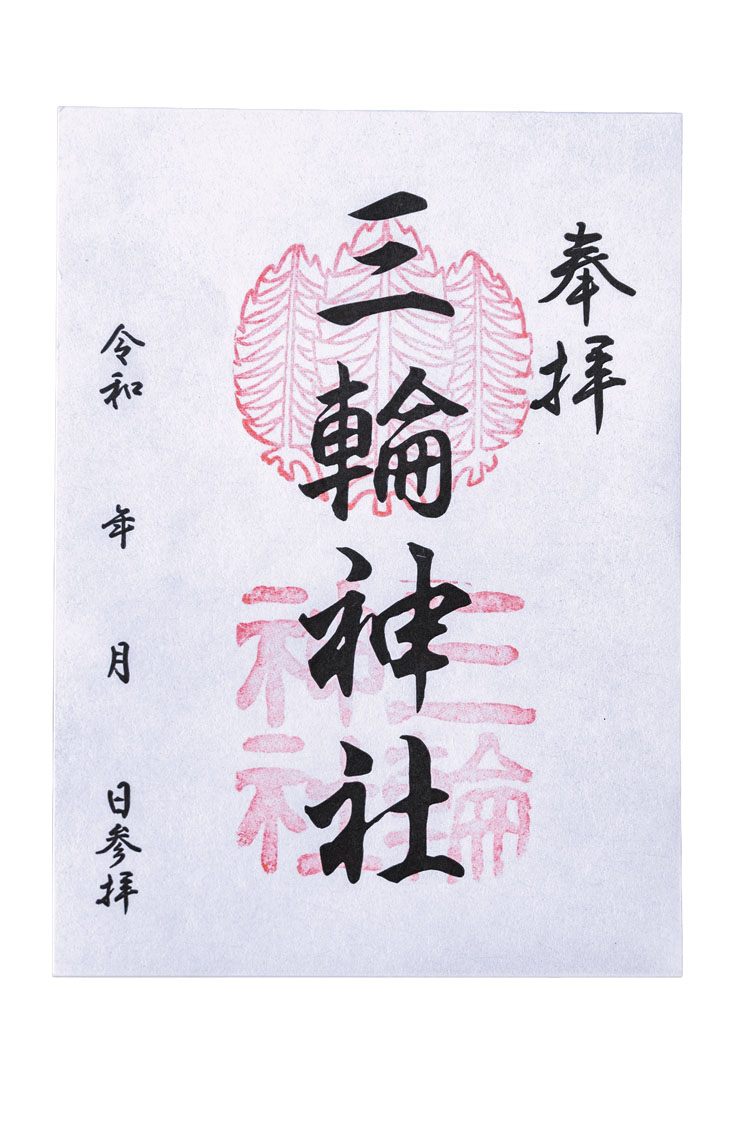 奉拝
三輪神社
三輪
神社
令和 年 月 日参拝